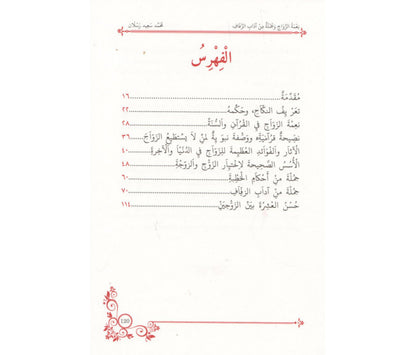 نعمة الزواج وجملة من آداب الزفاف
محمد سعيد رسلان
الْفِهْرِسُ
مُقَدِّمَةٌ ١٦
تَعْرِيفُ النِّكَاحِ، وَحُكْمُهُ ٢٢
نِعْمَةُ الزَّوَاجِ فِي الْقُرْآنِ وَالسُّنَّةِ ٢٨
نَصِيحَةٌ قُرْآنِيَّةٌ، وَوَصْفَةٌ نَبَوِيَّةٌ لِمَنْ لَا يَسْتَطِيعُ الزَّوَاجَ ٣٦
الْآثَارُ وَالْفَوَائِدُ الْعَظِيمَةُ لِلزَّوَاجِ فِي الدُّنْيَا وَالْآخِرَةِ ٤٠
الْأُسُسُ الصَّحِيحَةُ لِاخْتِيَارِ الزَّوْجِ وَالزَّوْجَةِ ٤٨
جُمْلَةٌ مِنْ أَحْكَامِ الْخِطْبَةِ ٦٠
جُمْلَةٌ مِنْ آدَابِ الزِّفَافِ ٧٠
حُسْنُ الْعِشْرَةِ بَيْنَ الزَّوْجَيْنِ ١١٤